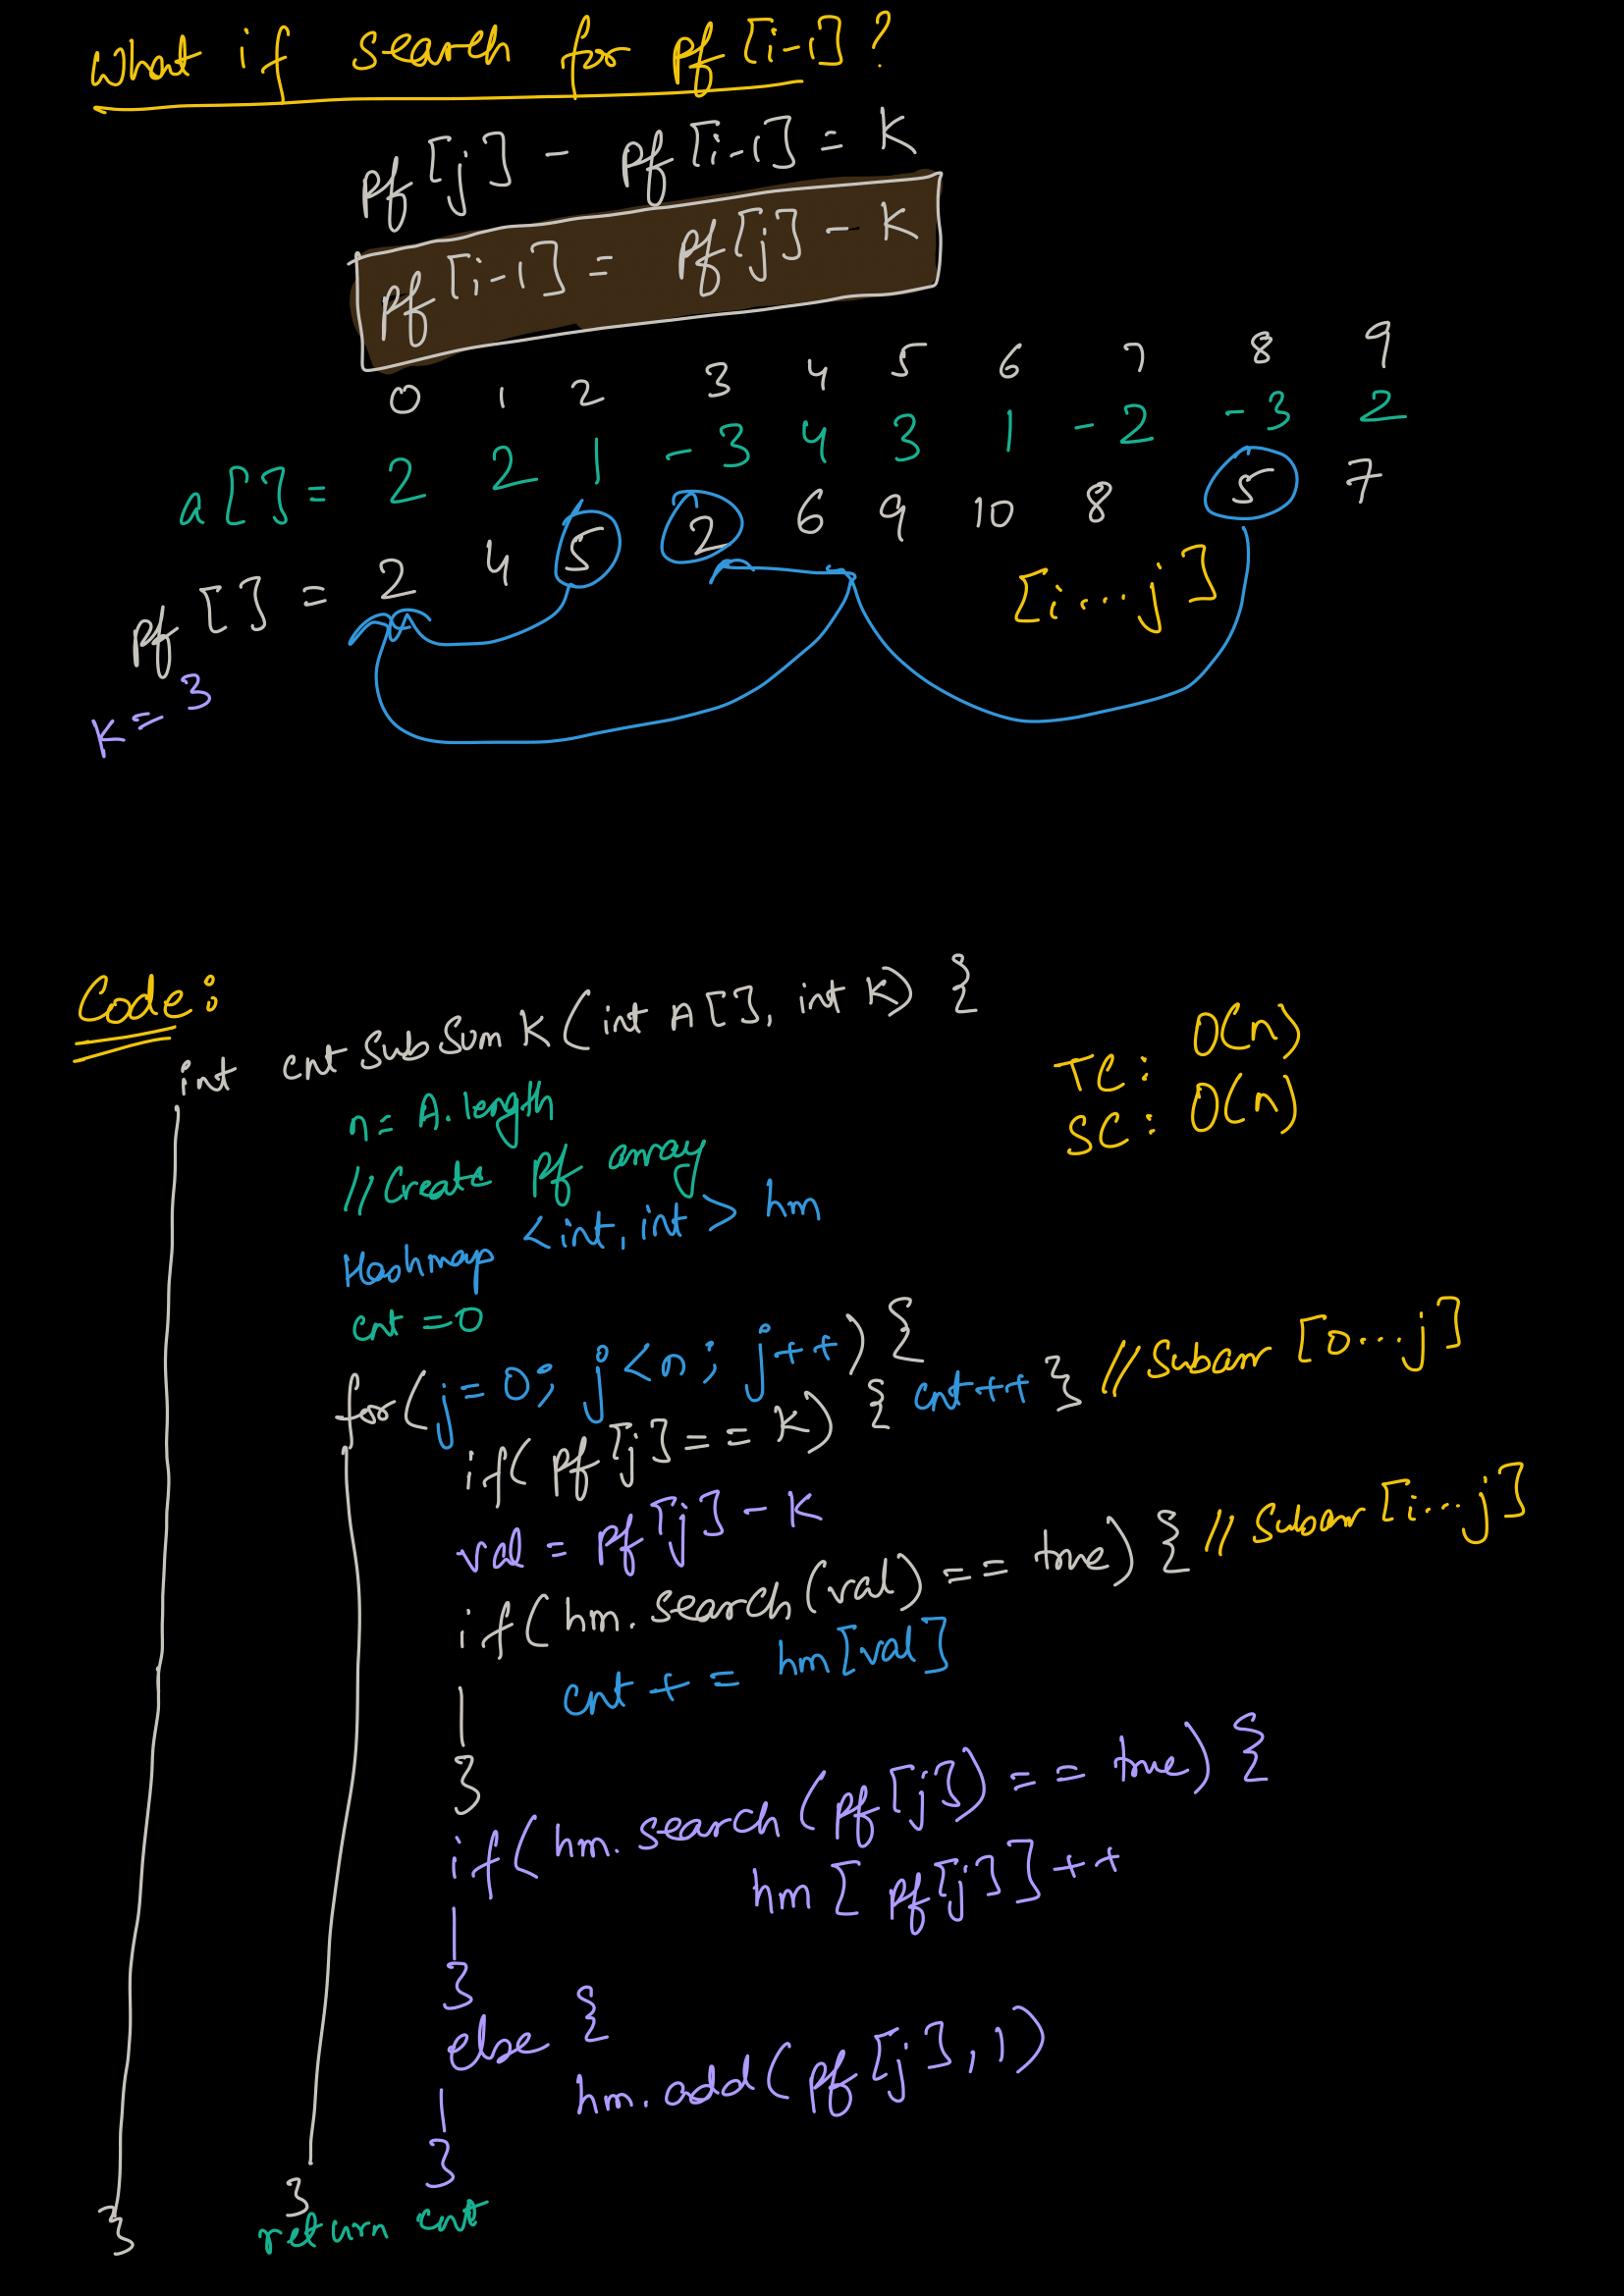 What if search for pf[i-1]?
pf[j] - pf[i-1] = K
pf[i-1] = pf[j] - K
0 1 2 3 4 5 6 7 8 9
a[] = 2 2 1 -3 4 3 1 -2 -3 2
pf[] = 2 4 5 2 6 9 10 8 5 7
[i...j]
K = 3
Code:
int cntSubSumK(int A[], int K) {
TC: O(n)
SC: O(n)
n = A.length
//Create pf array
Hashmap <int, int> hm
cnt = 0
for(j = 0; j < n; j++) {
if(pf[j] == K) { cnt++ } //Subarr [0...j]
val = pf[j] - K
if(hm.search(val) == true) { //Subarr [i...j]
cnt += hm[val]
}
if(hm.search(pf[j]) == true) {
hm[pf[j]]++
}
else {
hm.add(pf[j], 1)
}
}
return cnt
}